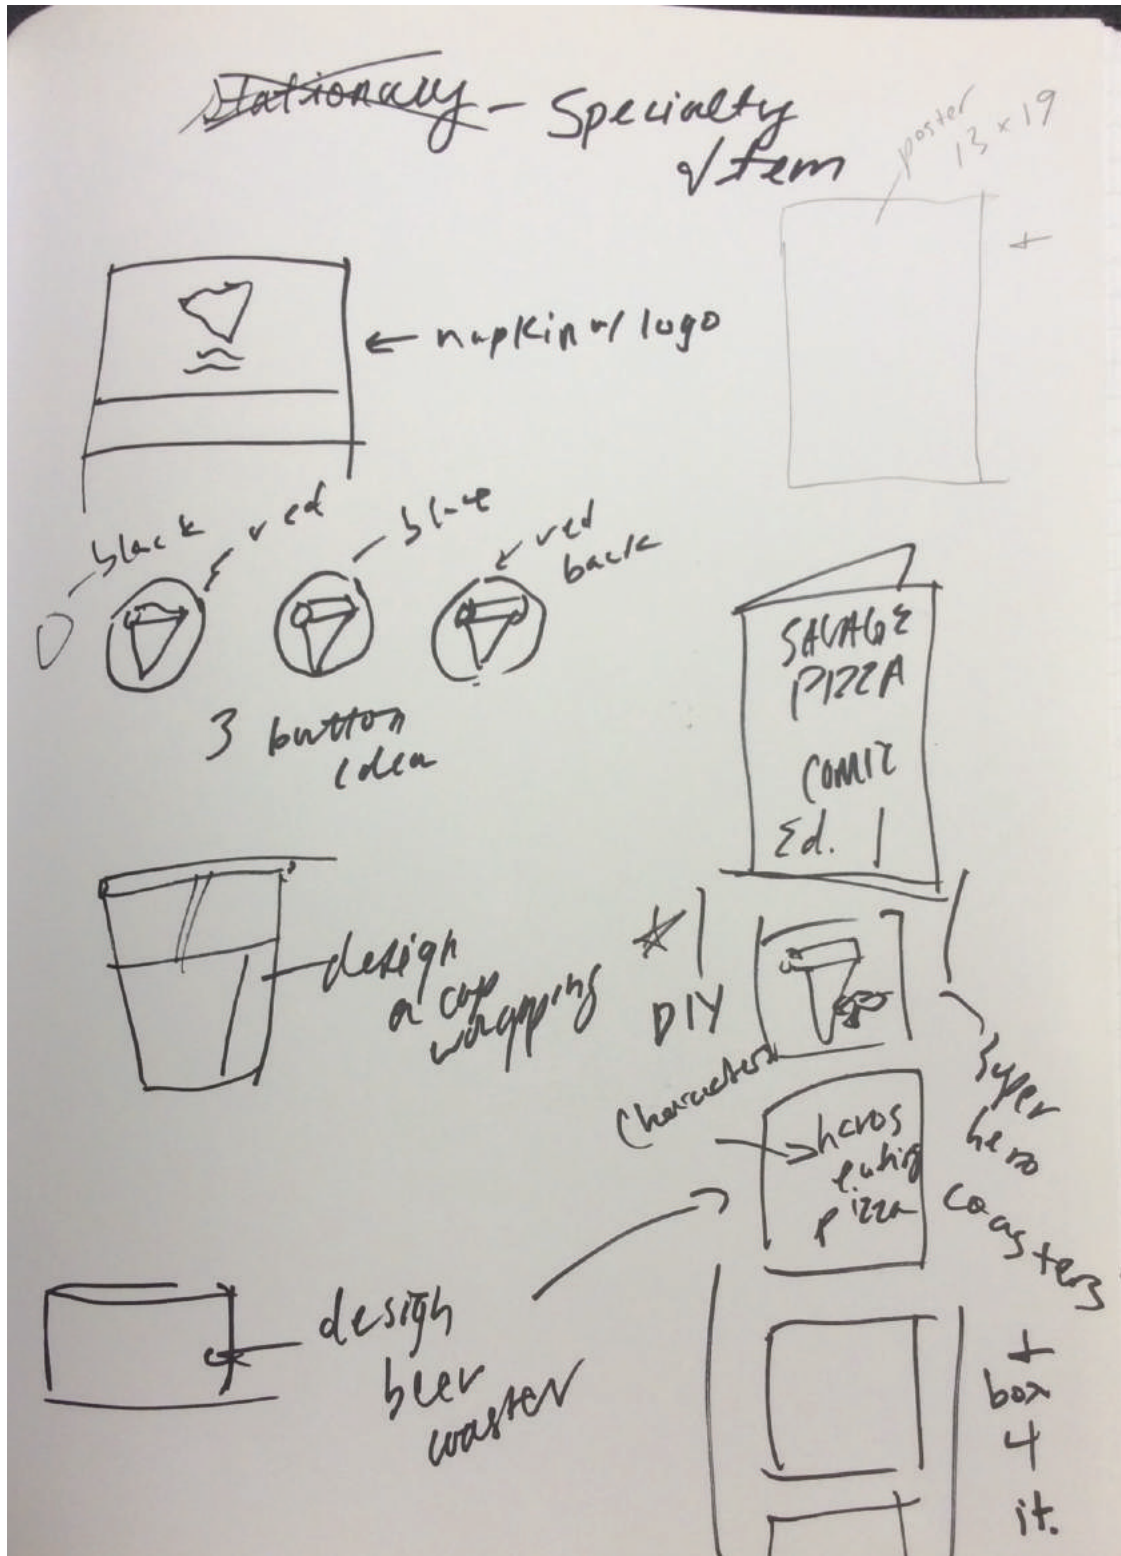 Stationary - Specialty
Item
poster
13 x 19
+
← napkin w/ logo
black
red
blue
red
back
3 button
idea
SAVAGE
PIZZA
COMIC
Ed. 1
design
a cup
wrapping
DIY
Characters
heros
eating
pizza
Super
hero
coasters
design
beer
coaster
+
box
4
it.